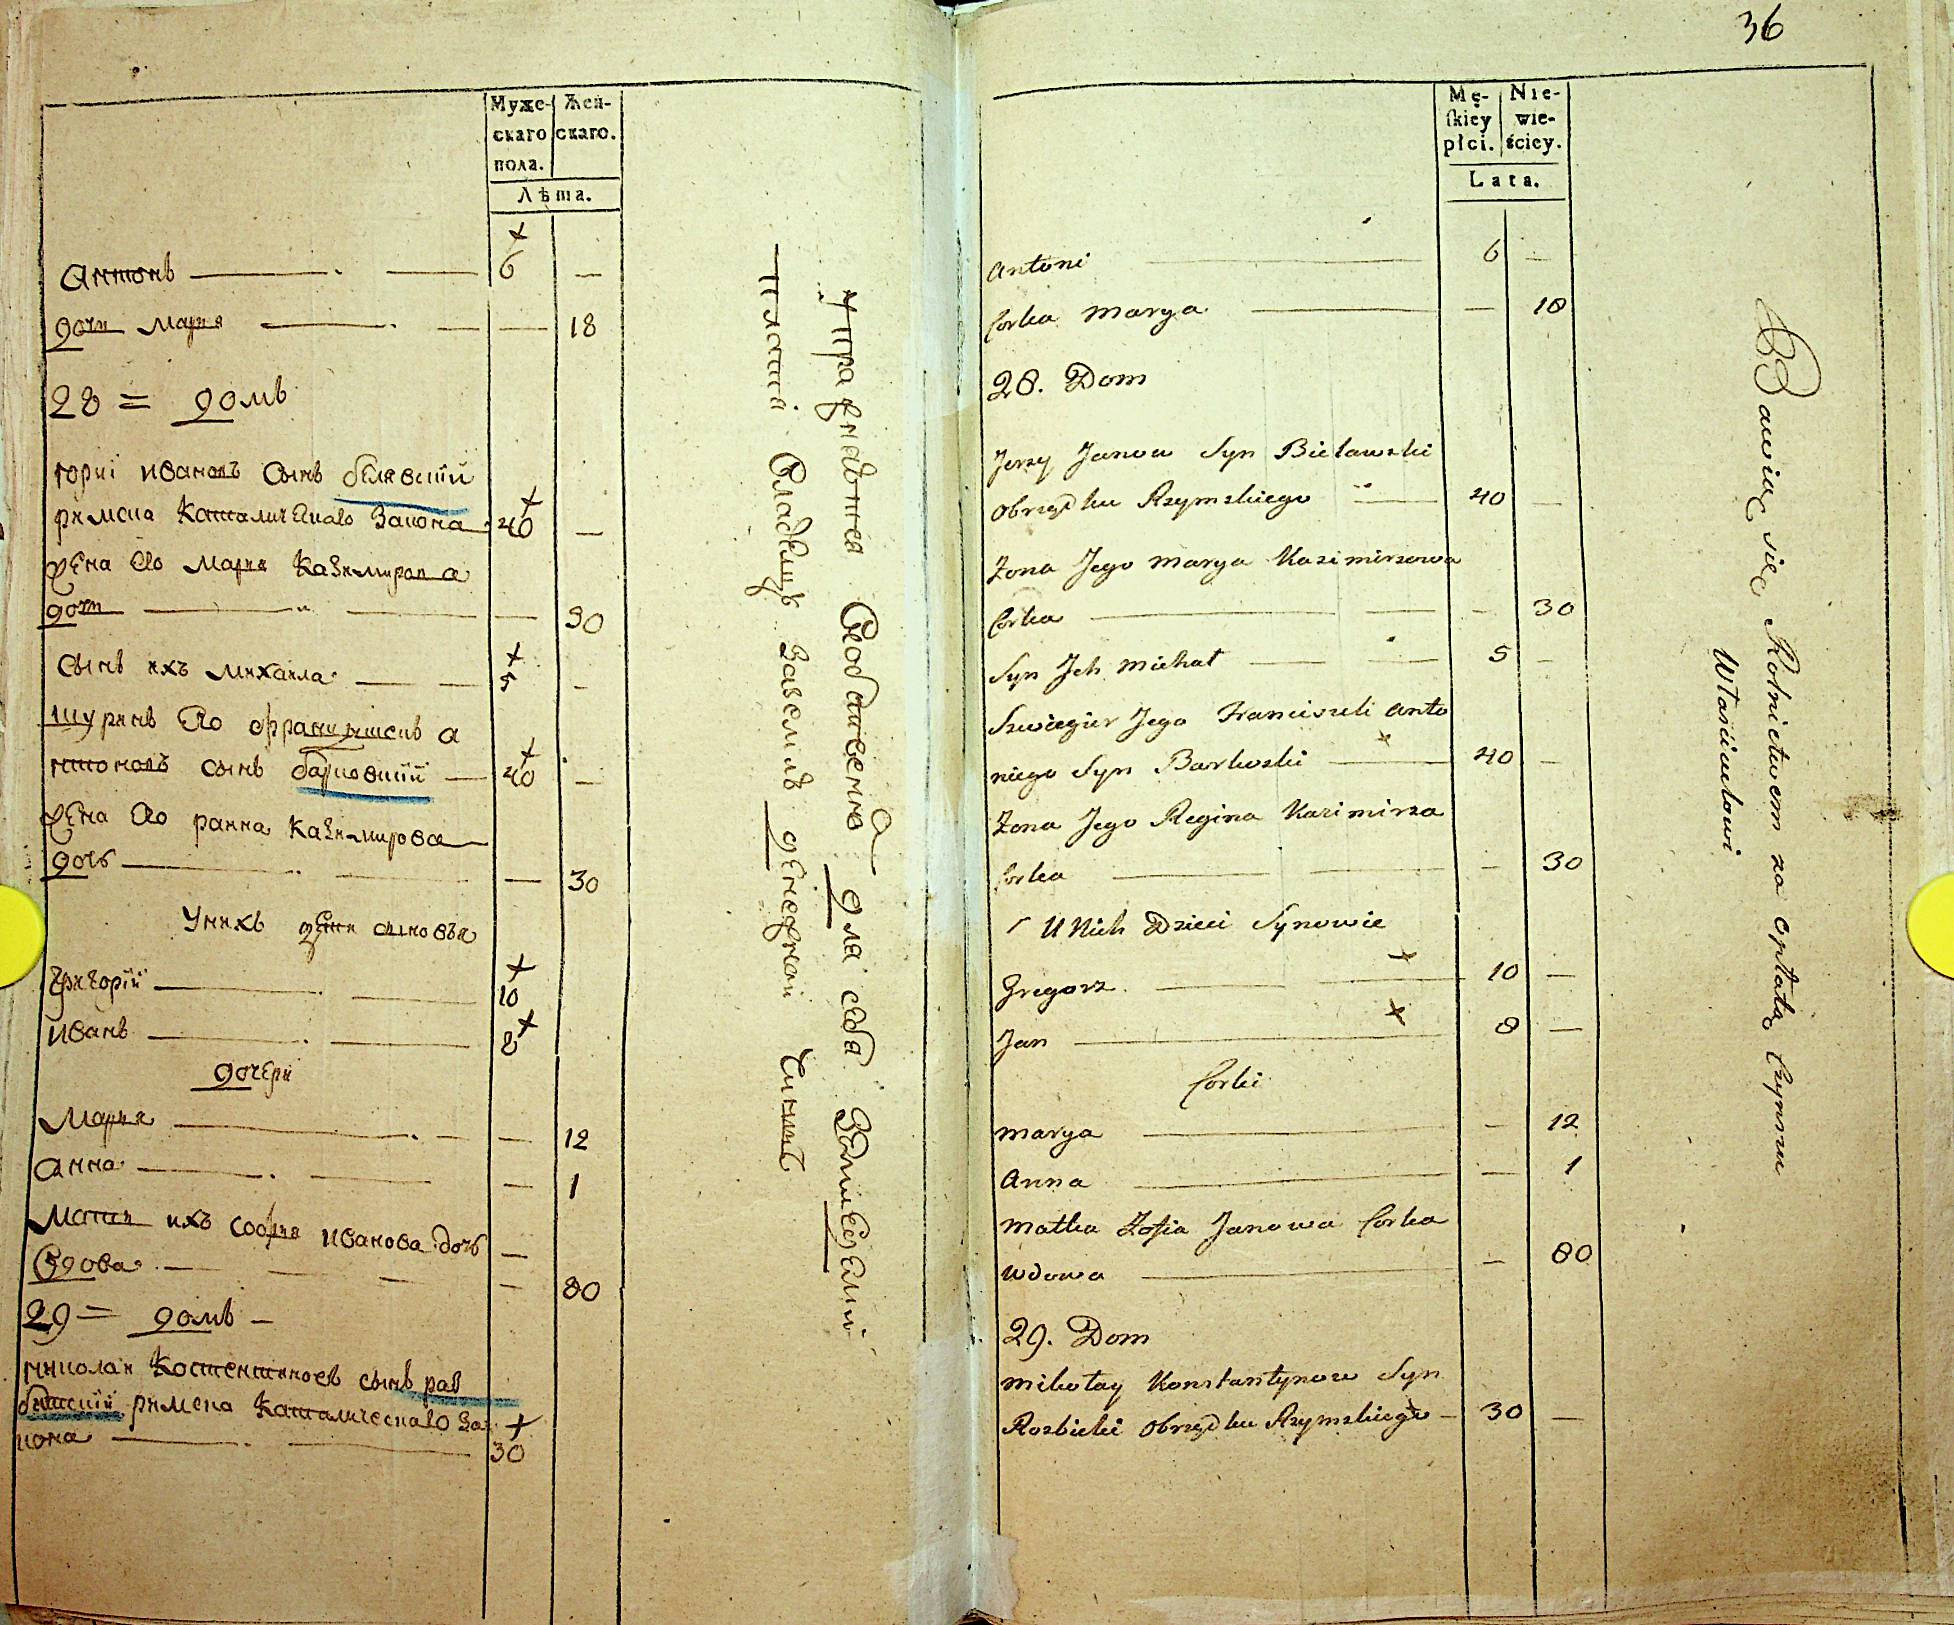 Муже-
скаго
пола.
Жен-
скаго.
Лѣта.
Антонъ 6 —
дочи Марїя — 18
28 = домъ
Юрїи Ивановъ сынъ Бѣлявскїй
римска католическаго закона 40 —
жена его Марїя Казимирова
дочи — 30
сынъ ихъ Михаила 5 —
шуринъ его Францишекъ А
нтоновъ сынъ Барковскїй 40 —
жена его Раина Казимирова
дочь — 30
У нихъ дети сыновъя
Григорїй 10
Иванъ 8
дочери
Марїя — 12
Анна — 1
Мати ихъ Софїя Иванова дочь —
вдова — 80
29 = домъ —
Николай Костентиновъ сынъ Раз
битскїй римска католическаго за
кона 30
для себя
владелцу денежной чиншъ
36
Mę-
skiey
płci.
Nie-
wie-
ściey.
Lata.
Antoni 6 —
Corka Marya — 18
28. Dom
Jerzy Janow Syn Bielawski
Obrządku Rzymskiego 40 —
Zona Jego Marya Kazimirzowa
Corka — 30
Syn Jch Michał 5 —
Szwiegier Jego Franciszek Anto
niego Syn Barkoski 40 —
Zona Jego Regina Kazimirza
Corka — 30
U Nich Dzieci Synowie
Gregorz 10 —
Jan 8 —
Corki
Marya — 12
Anna — 1
Matka Zofia Janowa Corka
Wdowa — 80
29. Dom
Mikołay Konstantynow Syn
Rozbicki Obrządku Rzymskiego 30 —
Bawiąc się Rolnictwem za opłatą Czynszu
Właścicielowi